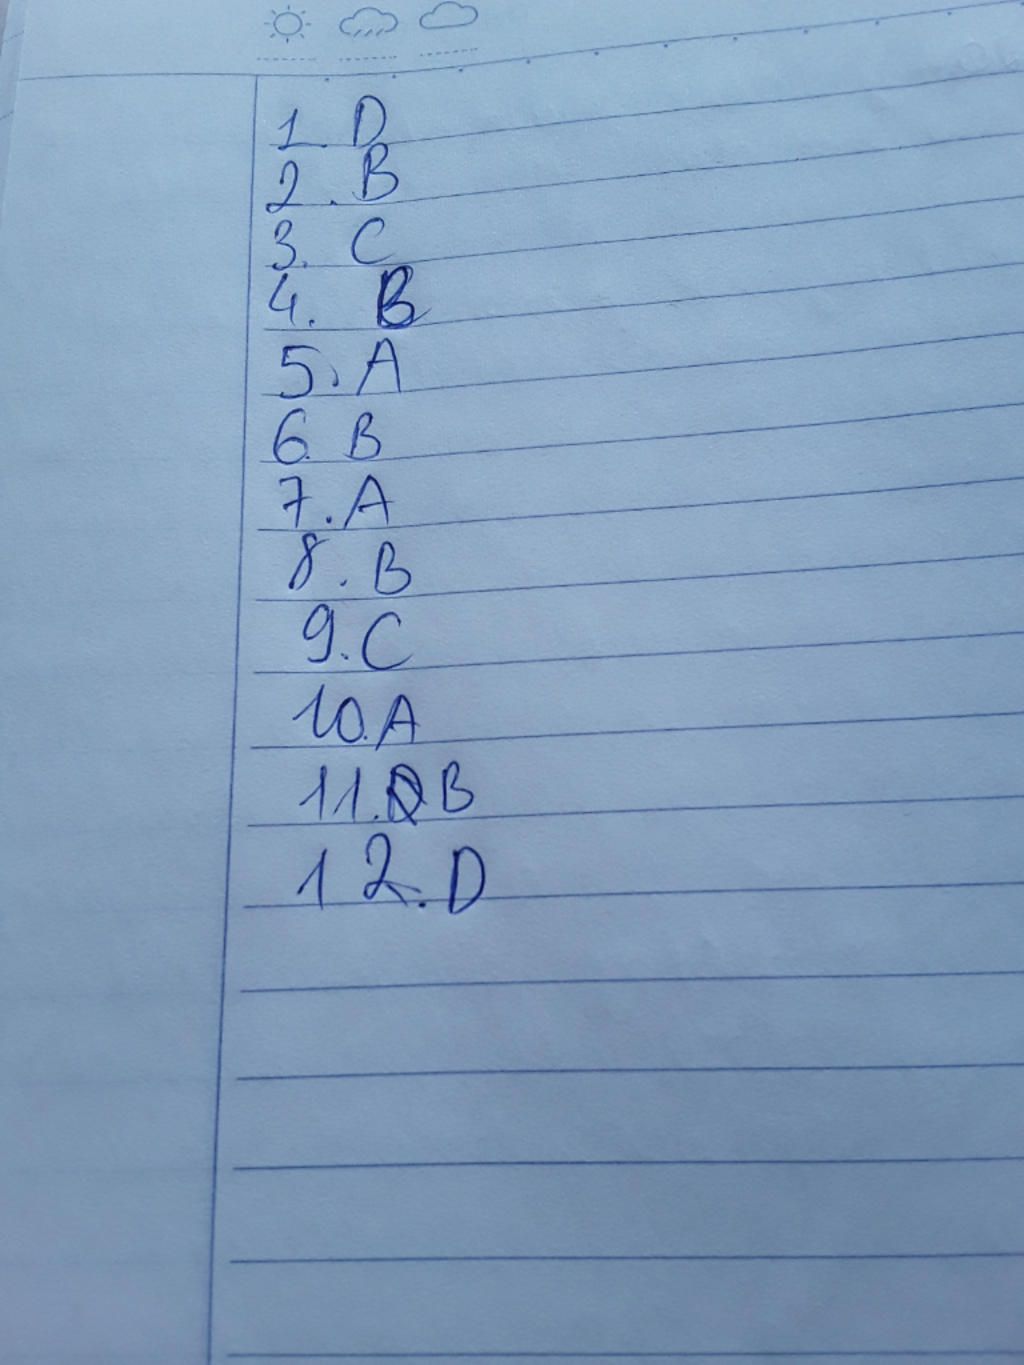 1. D
2. B
3. C
4. B
5. A
6. B
7. A
8. B
9. C
10. A
11. B
12. D